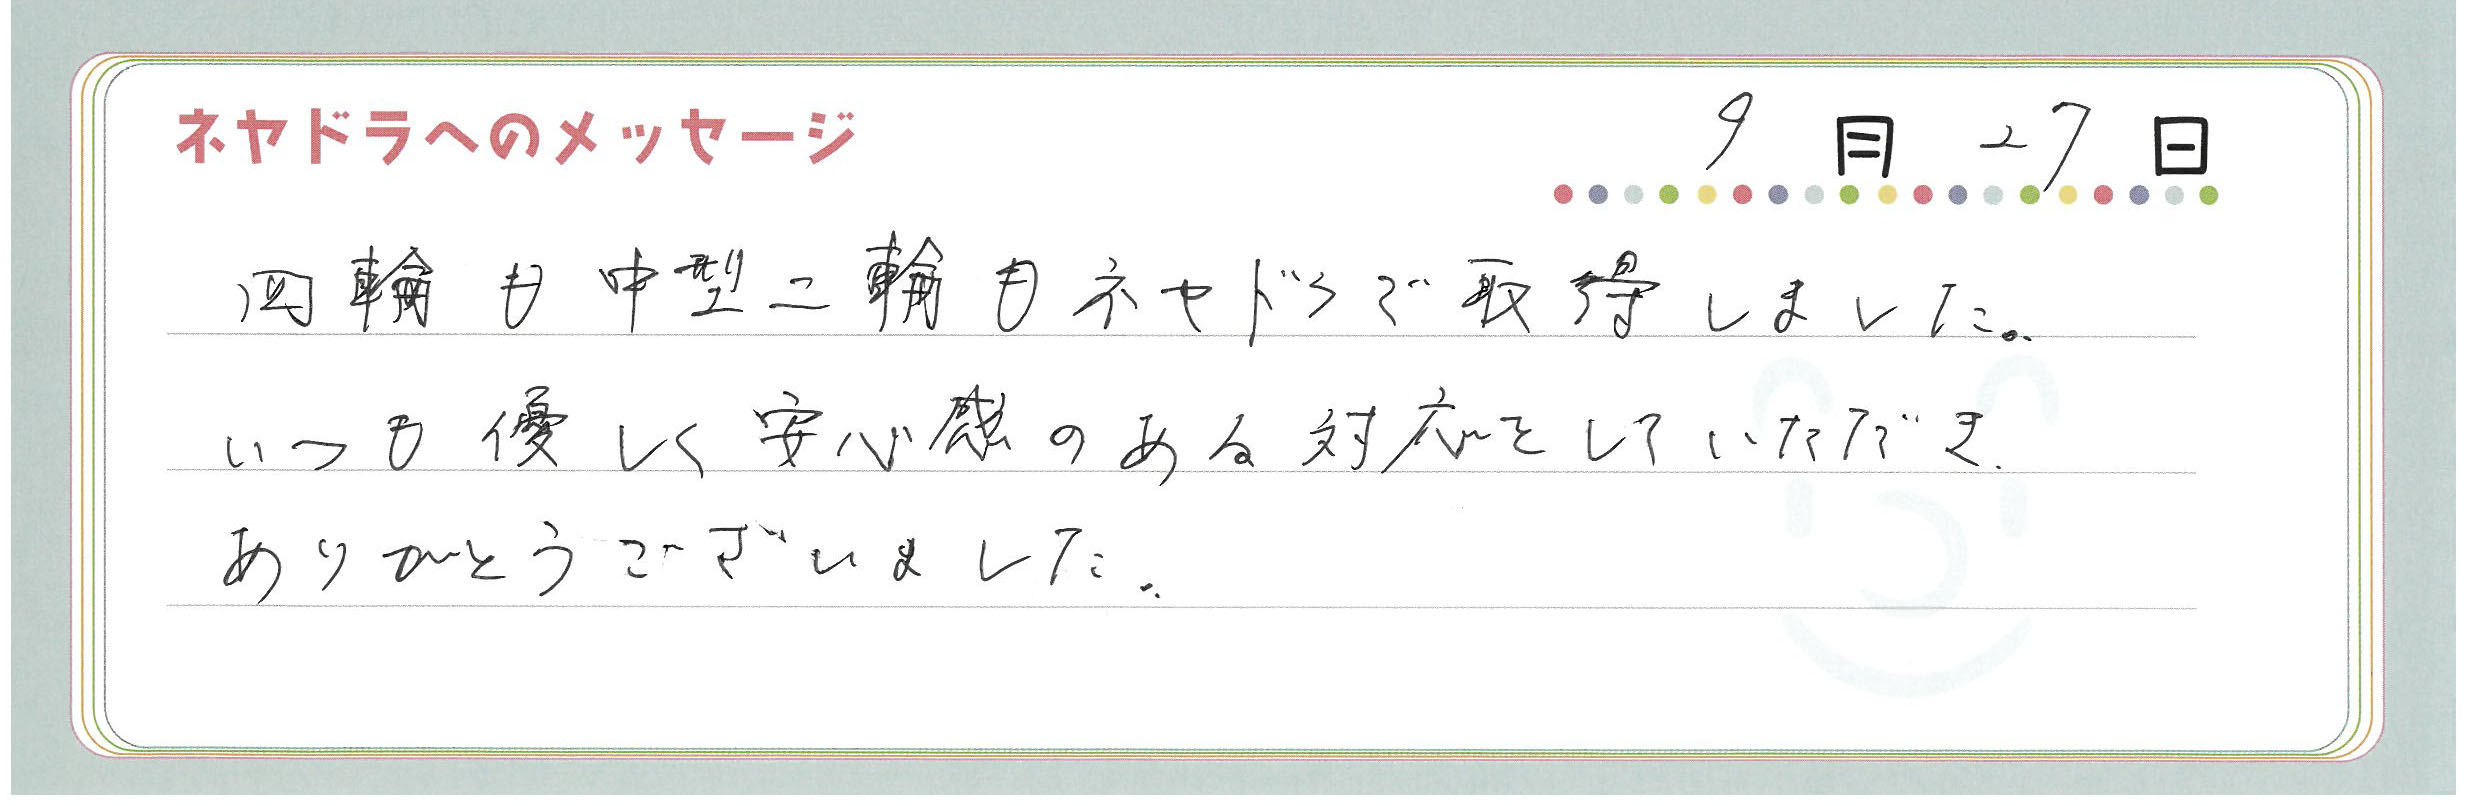 ネヤドラへのメッセージ 9月27日
四輪も中型二輪もネヤドラで取得しました。
いつも優しく安心感のある対応をしていただき
ありがとうございました。